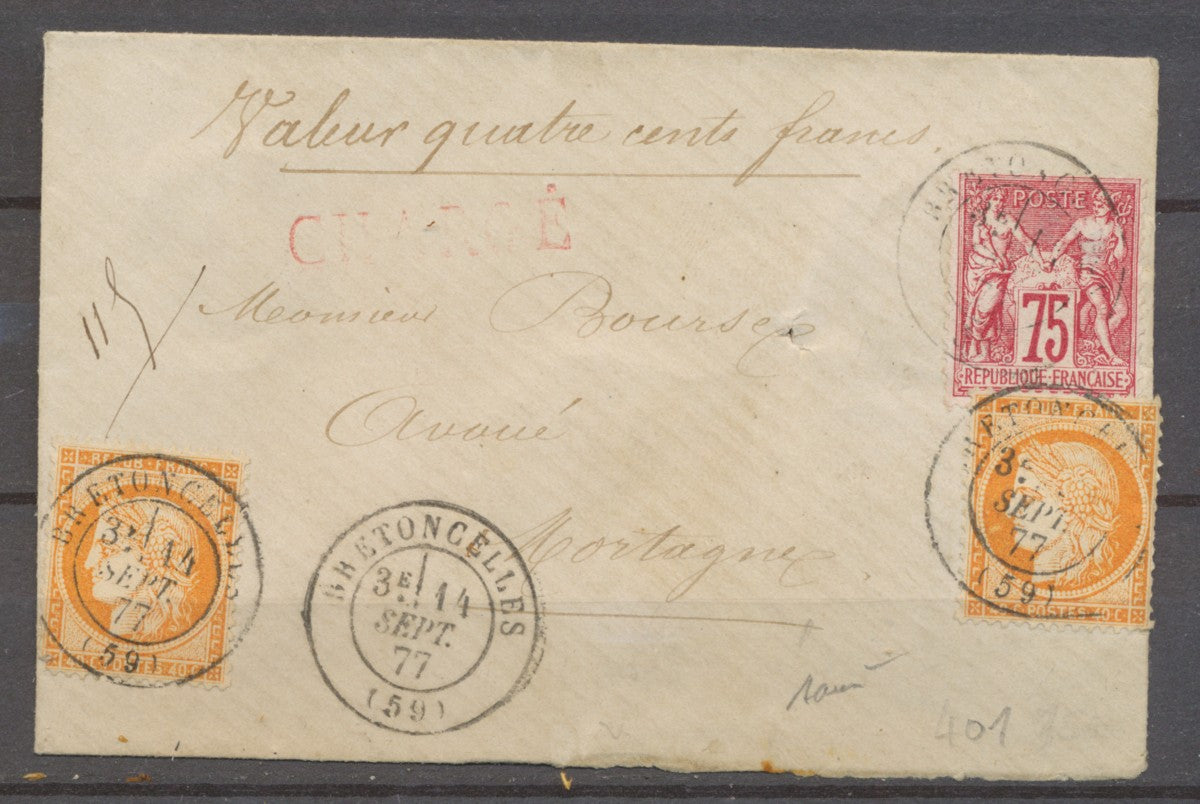 Valeur quatre cents francs.
CHARGÉ
115
Monsieur Boursex
Avoué
Mortagne
POSTE
75
REPUBLIQUE FRANÇAISE
BRETONCELLES
3E 14
SEPT.
77
(59)
BRETONCELLES
3E 14
SEPT.
77
(59)
BRETONCEL
3E
SEPT.
77
(59)
REPUB FRANC
POSTES 40 C
401